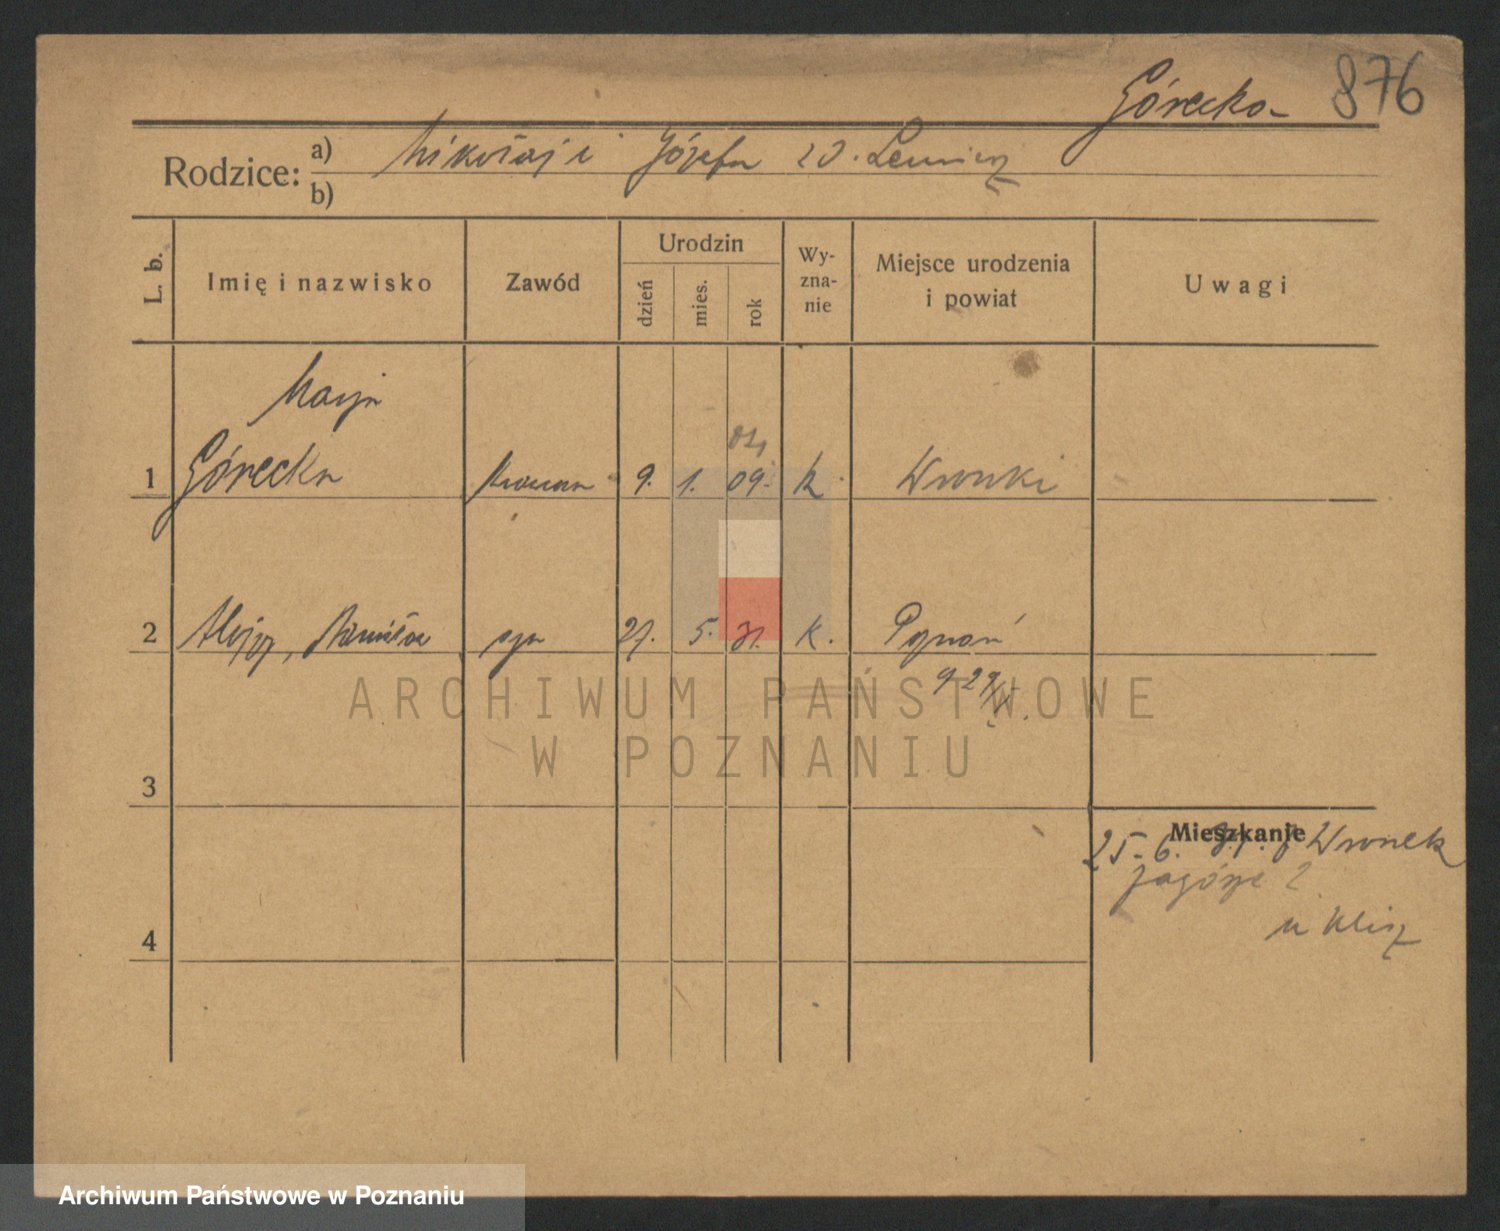 Górecka 876
Rodzice: a) Mikołaj i Józefa
b)
L. b.
Imię i nazwisko
Zawód
Urodzin
dzień
mies.
rok
Wy-
zna-
nie
Miejsce urodzenia
i powiat
Uwagi
Marja
04.
1 Górecka 9. 1. 09. k. Wronki
2 Alojzy, Stanisław syn 27. 5. 31. k. Poznań
9 29/
3
Mieszkanie
25. 6. 31. z Wronek
4
ARCHIWUM PAŃSTWOWE
W POZNANIU
Archiwum Państwowe w Poznaniu